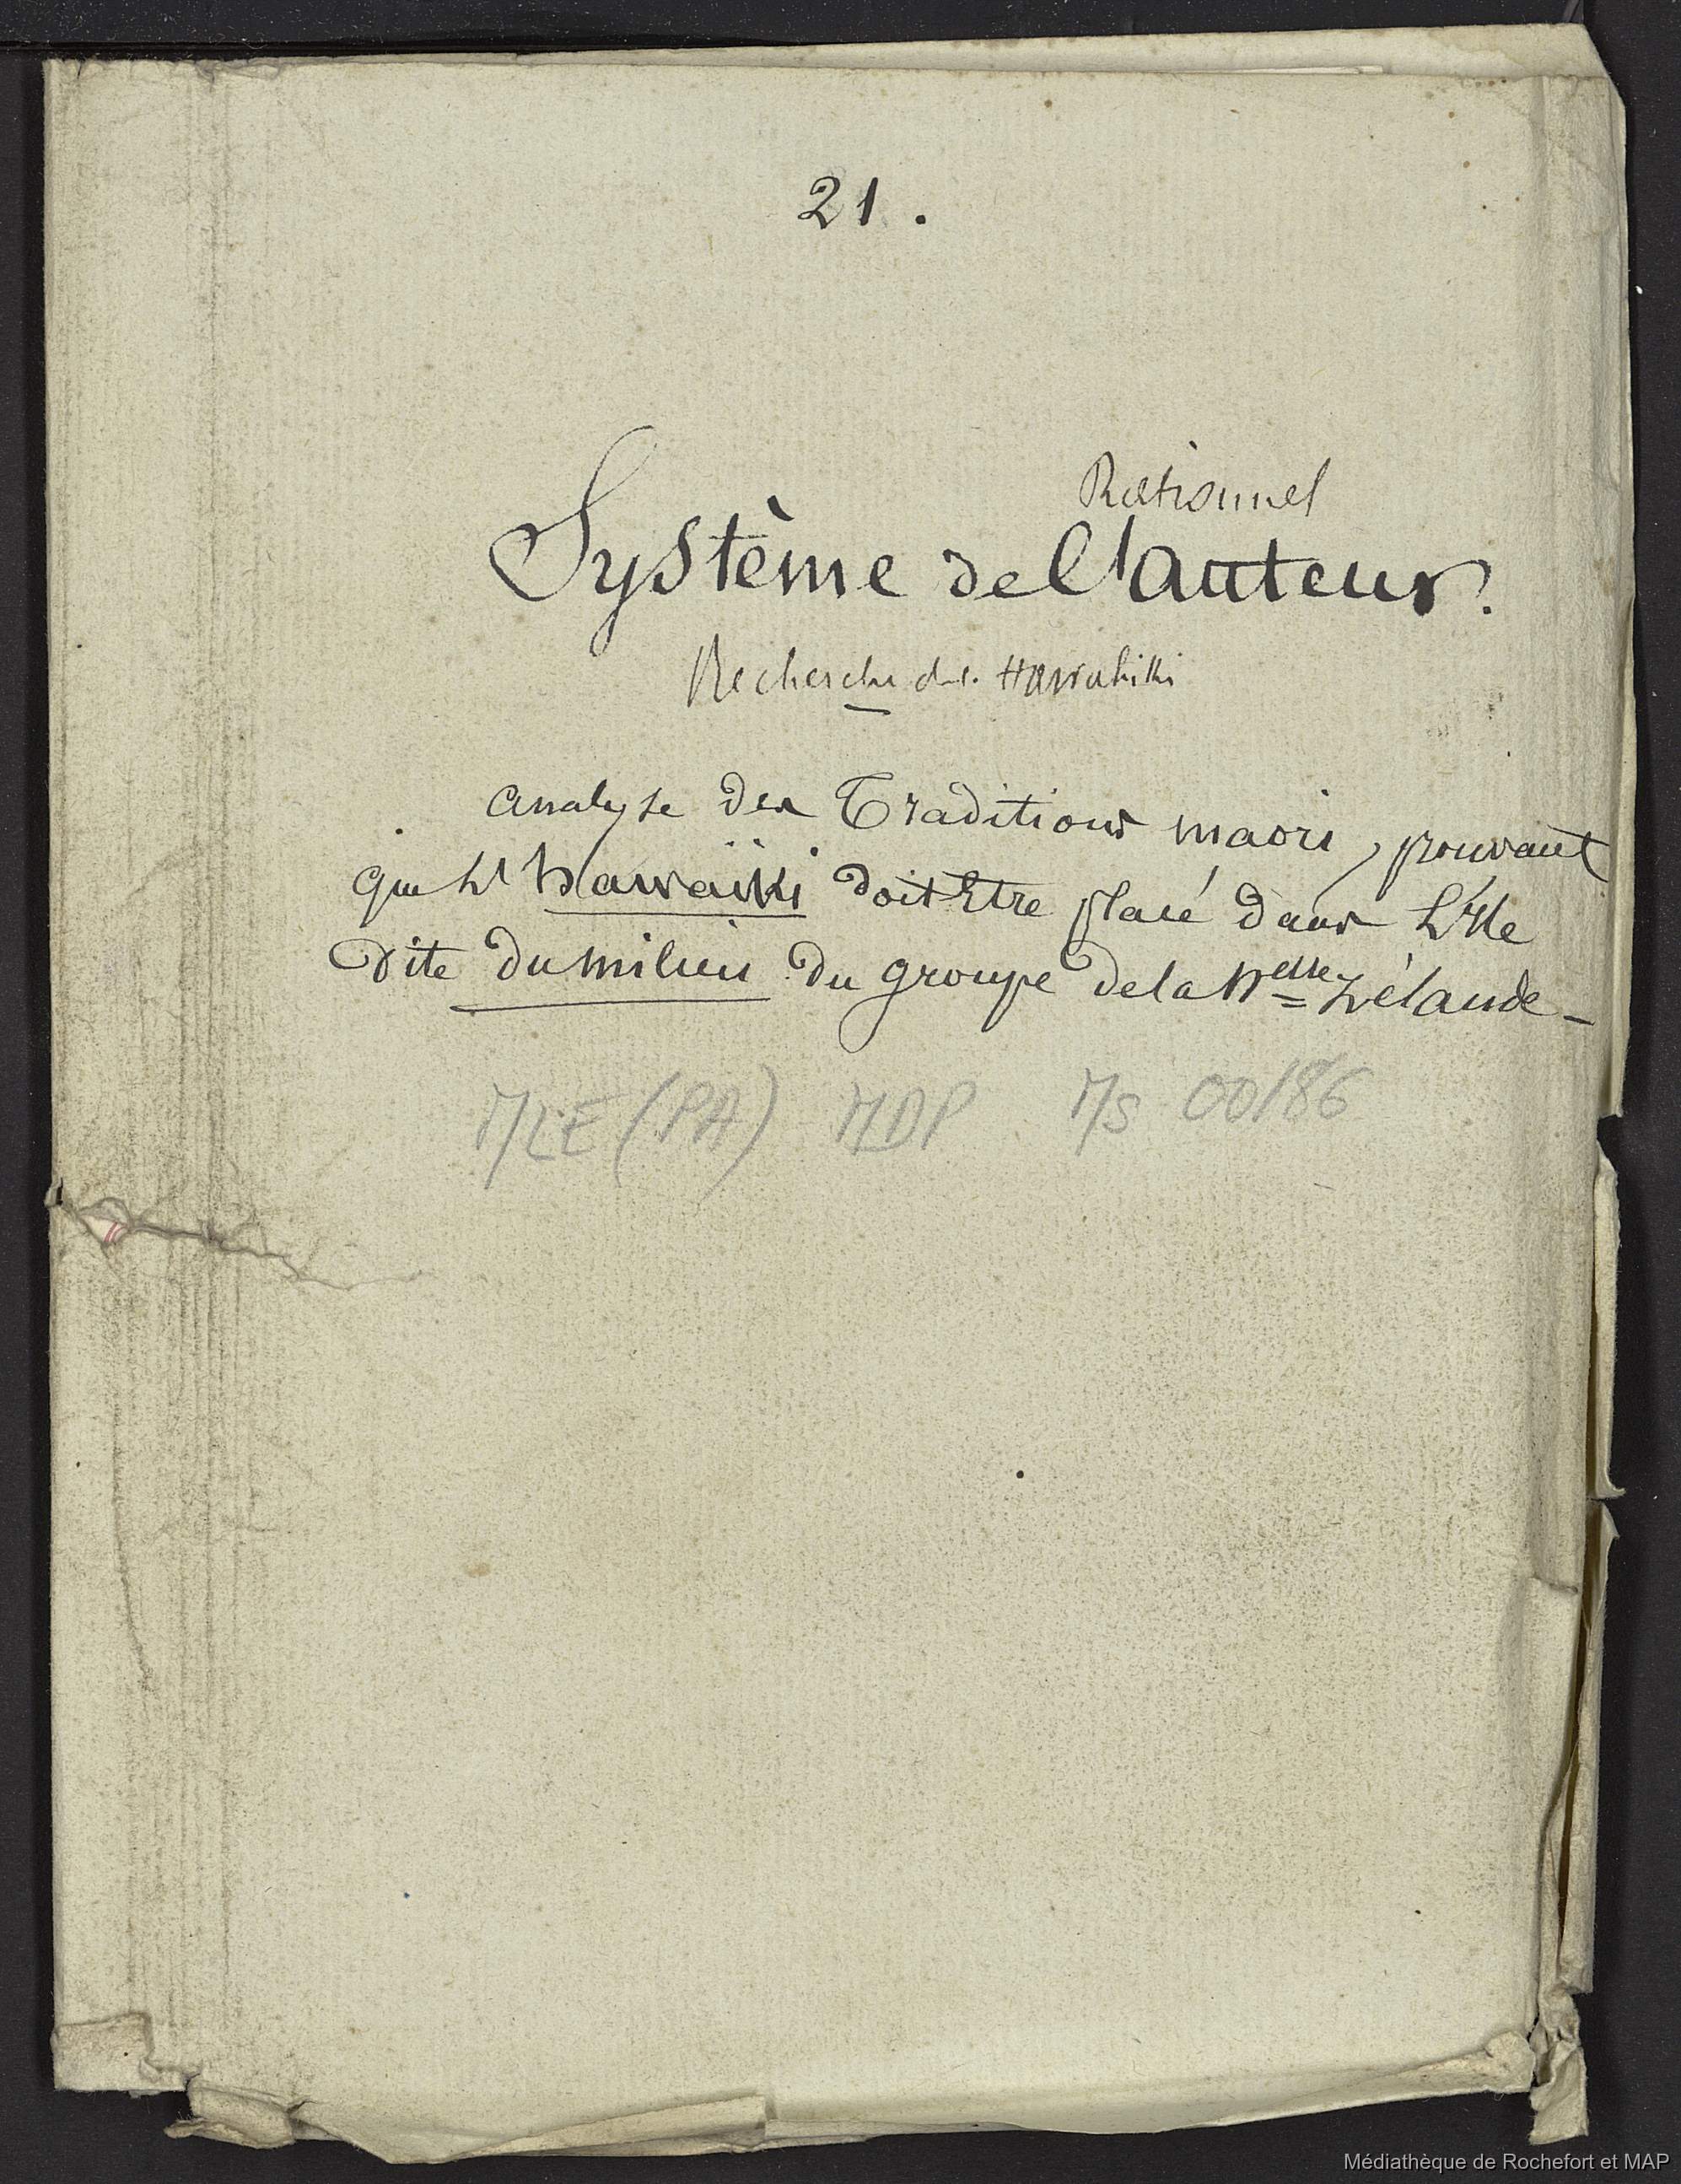 21.
Rationnel
Système de l'auteur.
Recherche de Hawahiki
analyse des Traditions maori, prouvant
que L' hawaïki doit Etre placé dans L'Ile
dite du milieu du groupe de la Nelle Zélande_
MLE (PA) MDP Ms 00186
Médiathèque de Rochefort et MAP